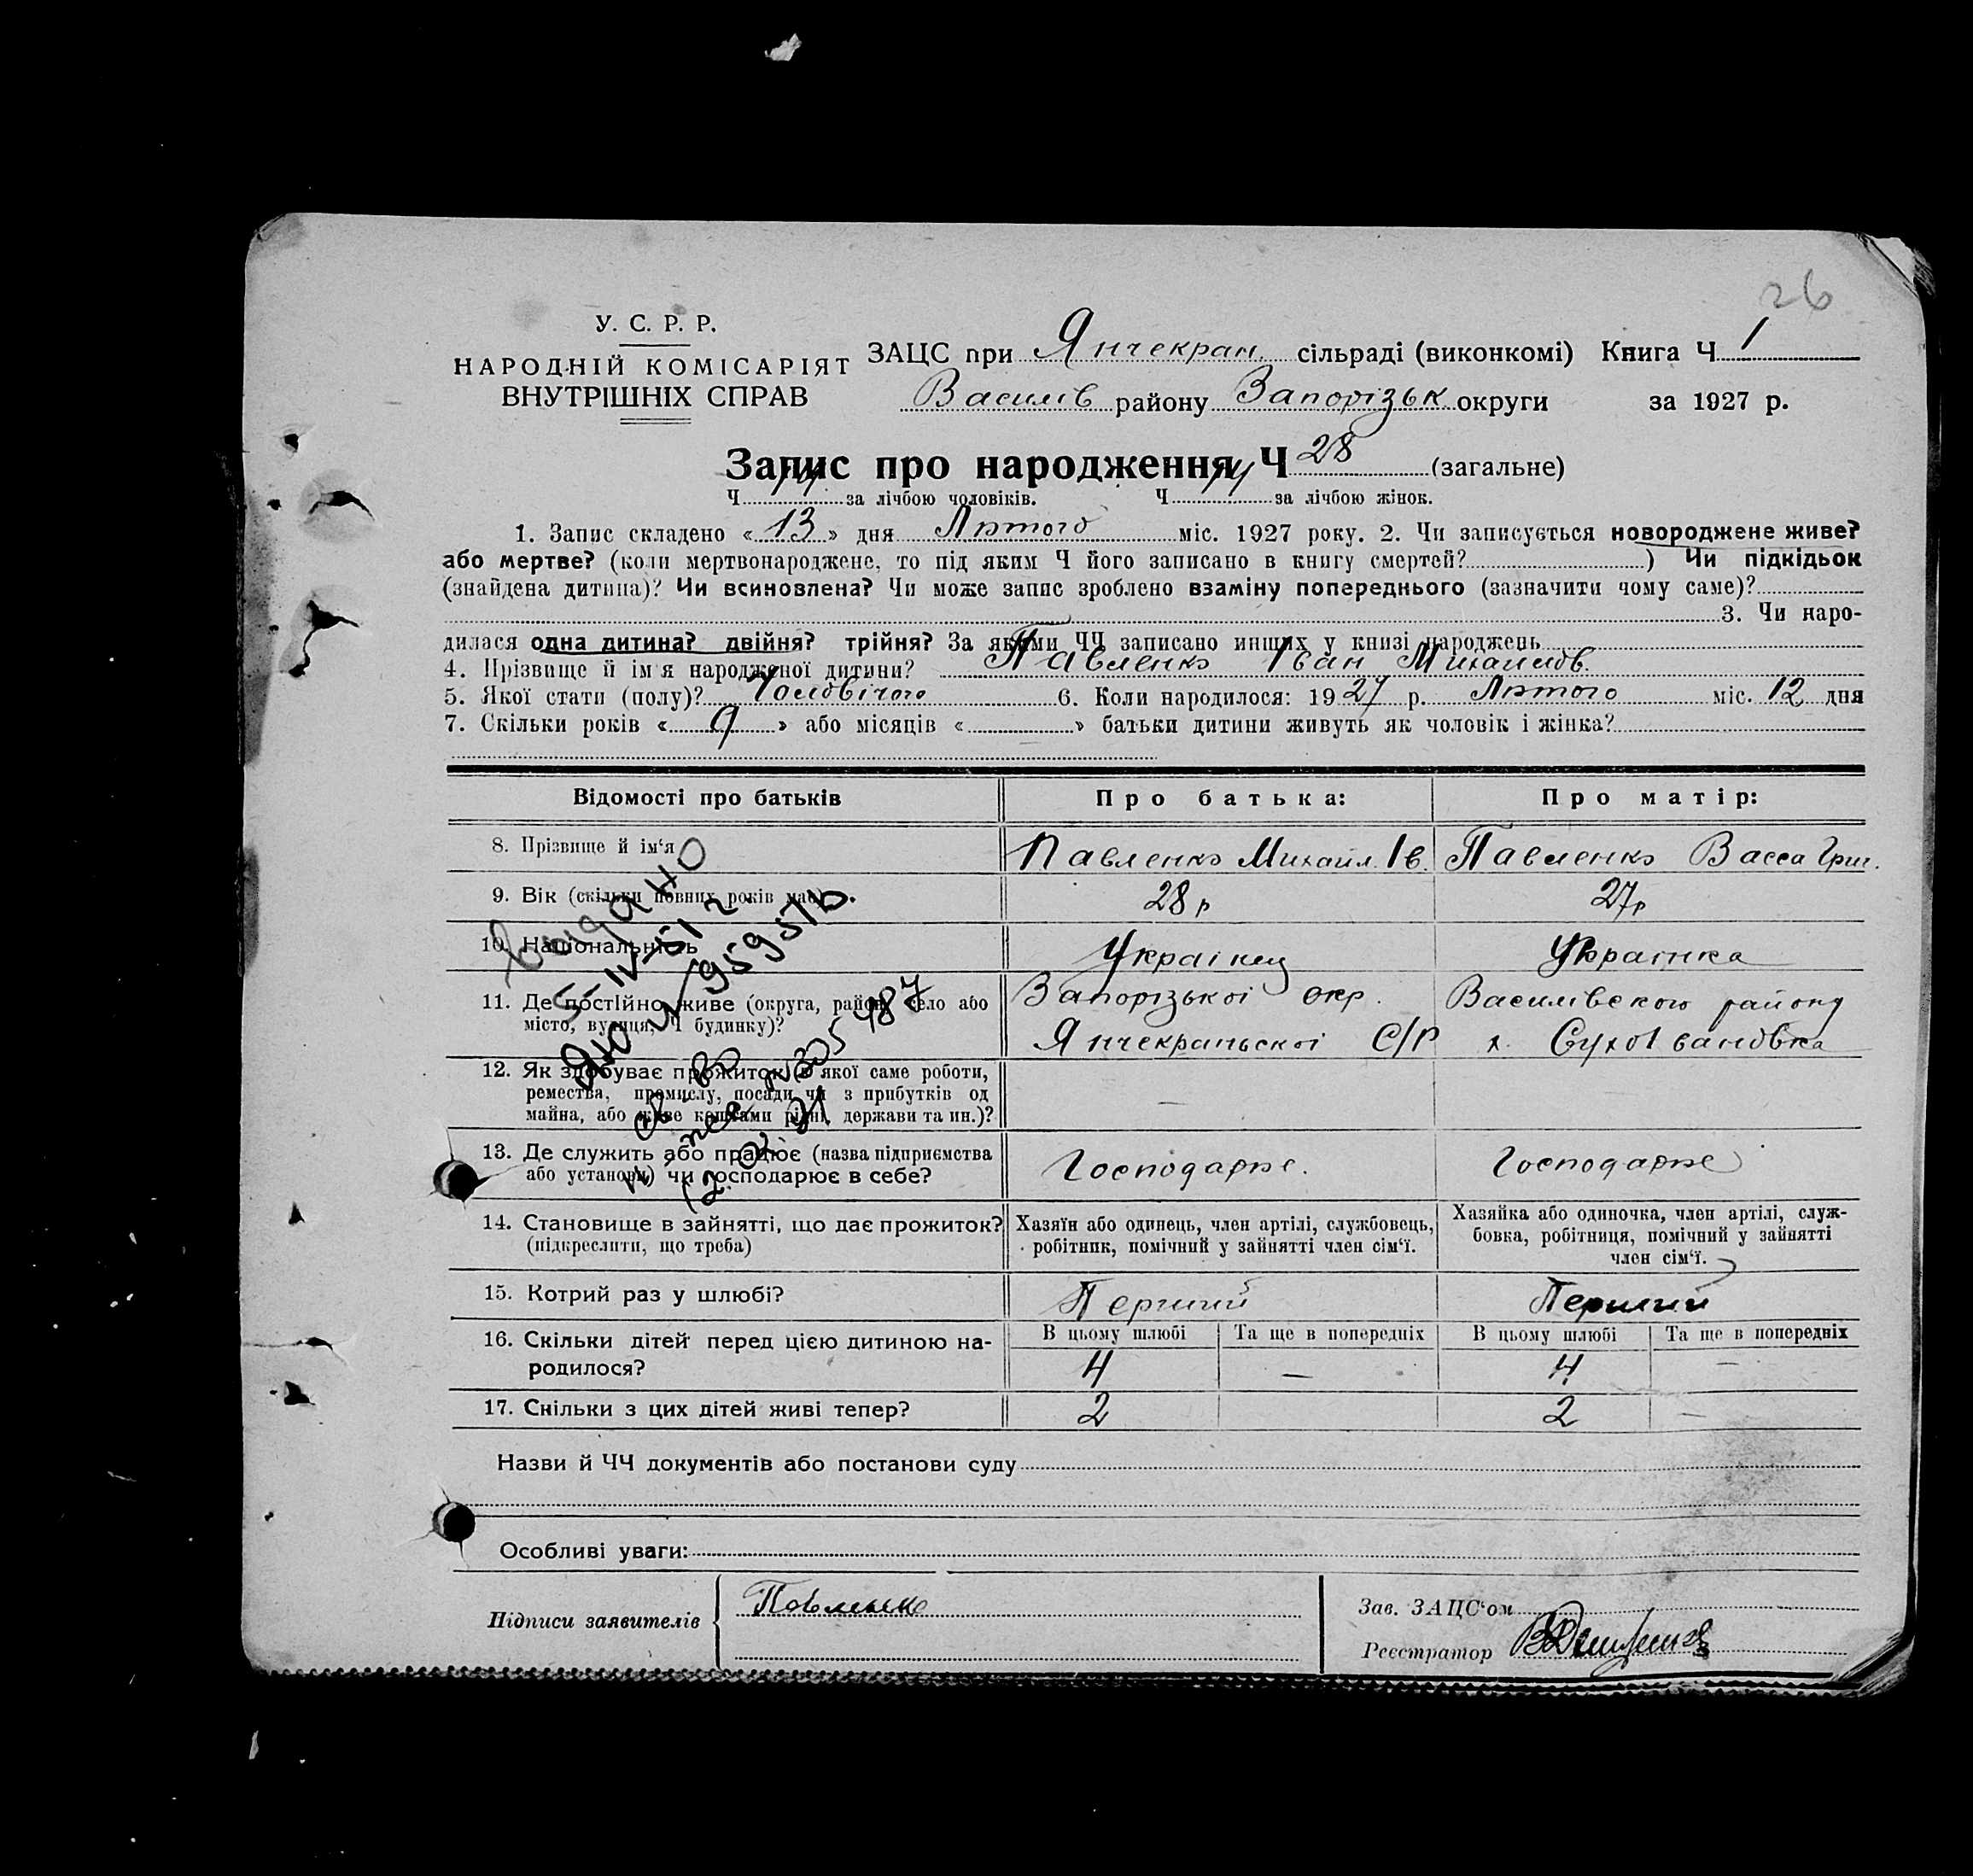 26
У. С. Р. Р.
НАРОДНІЙ КОМІСАРІЯТ
ВНУТРІШНІХ СПРАВ
ЗАЦС при Янчекран. сільраді (виконкомі) Книга Ч 1
Василів району Запорізьк округи за 1927 р.
Запис про народження Ч 28 (загальне)
Ч 14 за лічбою чоловіків. Ч 14 за лічбою жінок.
1. Запис складено « 13 » дня Лютого міс. 1927 року. 2. Чи записується новороджене живе?
або мертве? (коли мертвонароджене, то під яким Ч його записано в книгу смертей? ) Чи підкідьок
(знайдена дитина)? Чи всиновлена? Чи може запис зроблено взаміну попереднього (зазначити чому саме)?
3. Чи наро-
дилася одна дитина? двійня? трійня? За якими ЧЧ записано инших у книзі народжень
4. Прізвище й ім'я народженої дитини? Павленко Іван Михайлов.
5. Якої стати (полу)? Чоловічого 6. Коли народилося: 1927 р. Лютого міс. 12 дня
7. Скільки років « 9 » або місяців « » батьки дитини живуть як чоловік і жінка?
Відомості про батьків Про батька: Про матір:
8. Прізвище й ім'я Павленко Михайл. Ів. Павленко Васса Григ.
9. Вік (скільки повних років має) 28 р 27р
10. Національність Українец Українка
11. Де постійно живе (округа, район, село або Запорізької окр. Василівского району
місто, вулиця, Ч будинку)? Янчекраньскої С/Р х. СухоІвановка
12. Як здобуває прожиток (з якої саме роботи,
ремества, промислу, посади чи з прибутків од
майна, або живе коштами рідні, держави та ин.)? —
13. Де служить або працює (назва підприємства
або установи) чи господарює в себе? Господарює. Господарює
14. Становище в зайнятті, що дає прожиток? Хазяїн або одинець, член артілі, службовець, Хазяйка або одиночка, член артілі, служ-
(підкреслити, що треба) робітник, помічний у зайнятті член сім'ї. бовка, робітниця, помічний у зайнятті
член сім'ї.
15. Котрий раз у шлюбі? Перший Перший
16. Скільки дітей перед цією дитиною на- В цьому шлюбі Та ще в попередніх В цьому шлюбі Та ще в попередніх
родилося? 4 — 4 —
17. Скільки з цих дітей живі тепер? 2 2 —
видано
Назви й ЧЧ документів або постанови суду
Особливі уваги:
Підписи заявителів Павленко
Зав. ЗАЦС'ом
Реєстратор